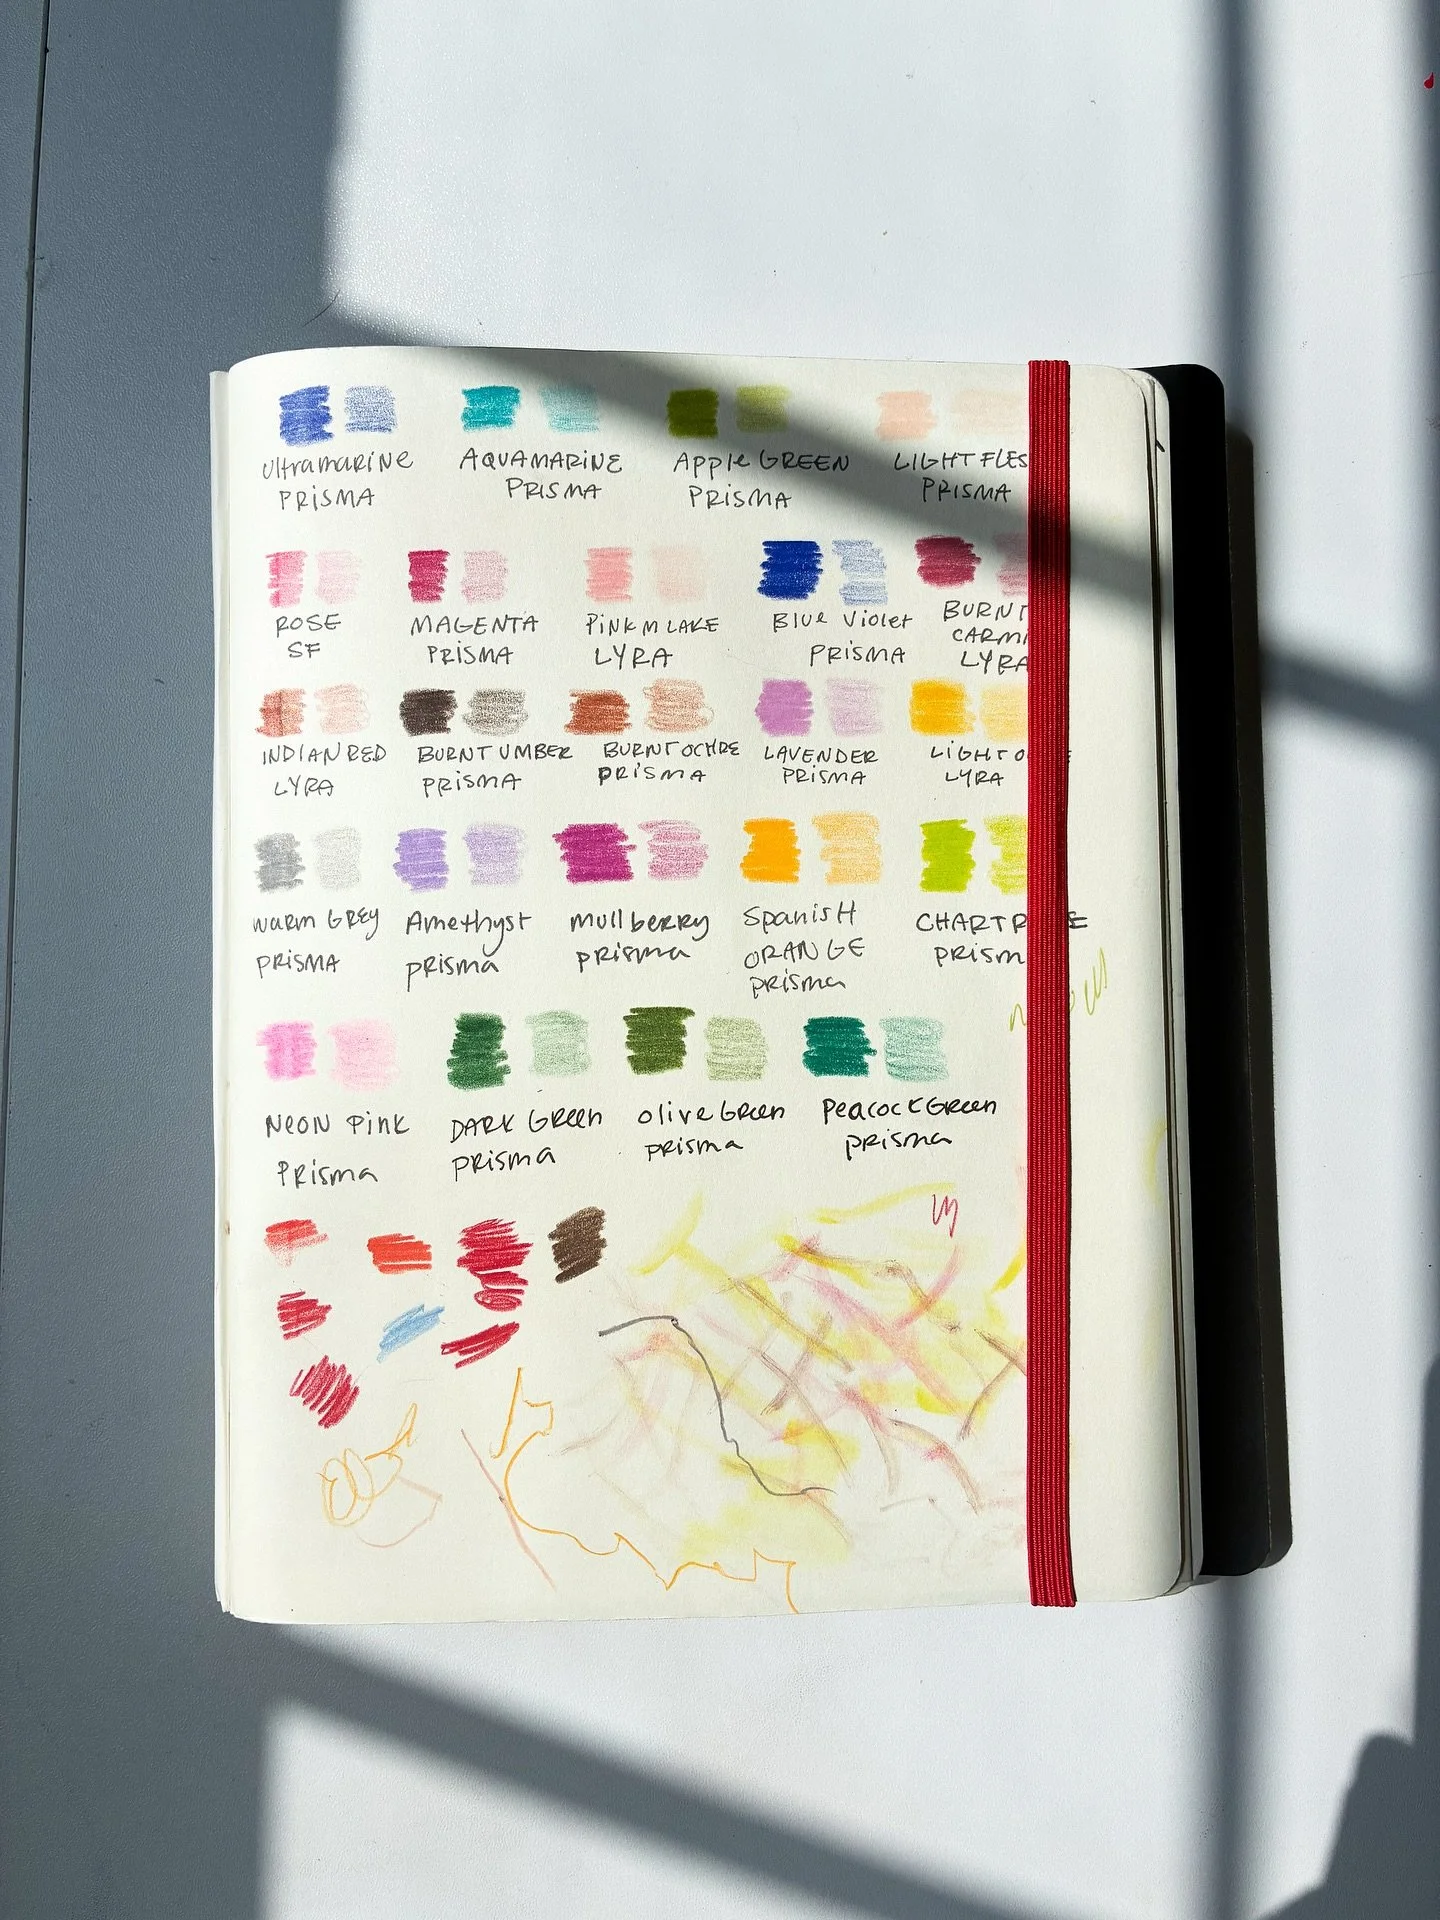 ultramarine
PRISMA
AQUAMARINE
PRISMA
Apple GREEN
PRISMA
LIGHT FLES
PRISMA
ROSE
SF
MAGENTA
PRISMA
PINK M LAKE
LYRA
Blue Violet
PRISMA
BURNT
CARMI
LYRA
INDIAN RED
LYRA
BURNT UMBER
PRISMA
BURNT OCHRE
PRISMA
LAVENDER
PRISMA
LIGHT O
LYRA
warm GREY
PRISMA
Amethyst
prisma
mullberry
prisma
SpanisH
ORANGE
prisma
CHARTR E
prism
NEON Pink
Prisma
DARK Green
prisma
olive Green
prisma
Peacock Green
prisma